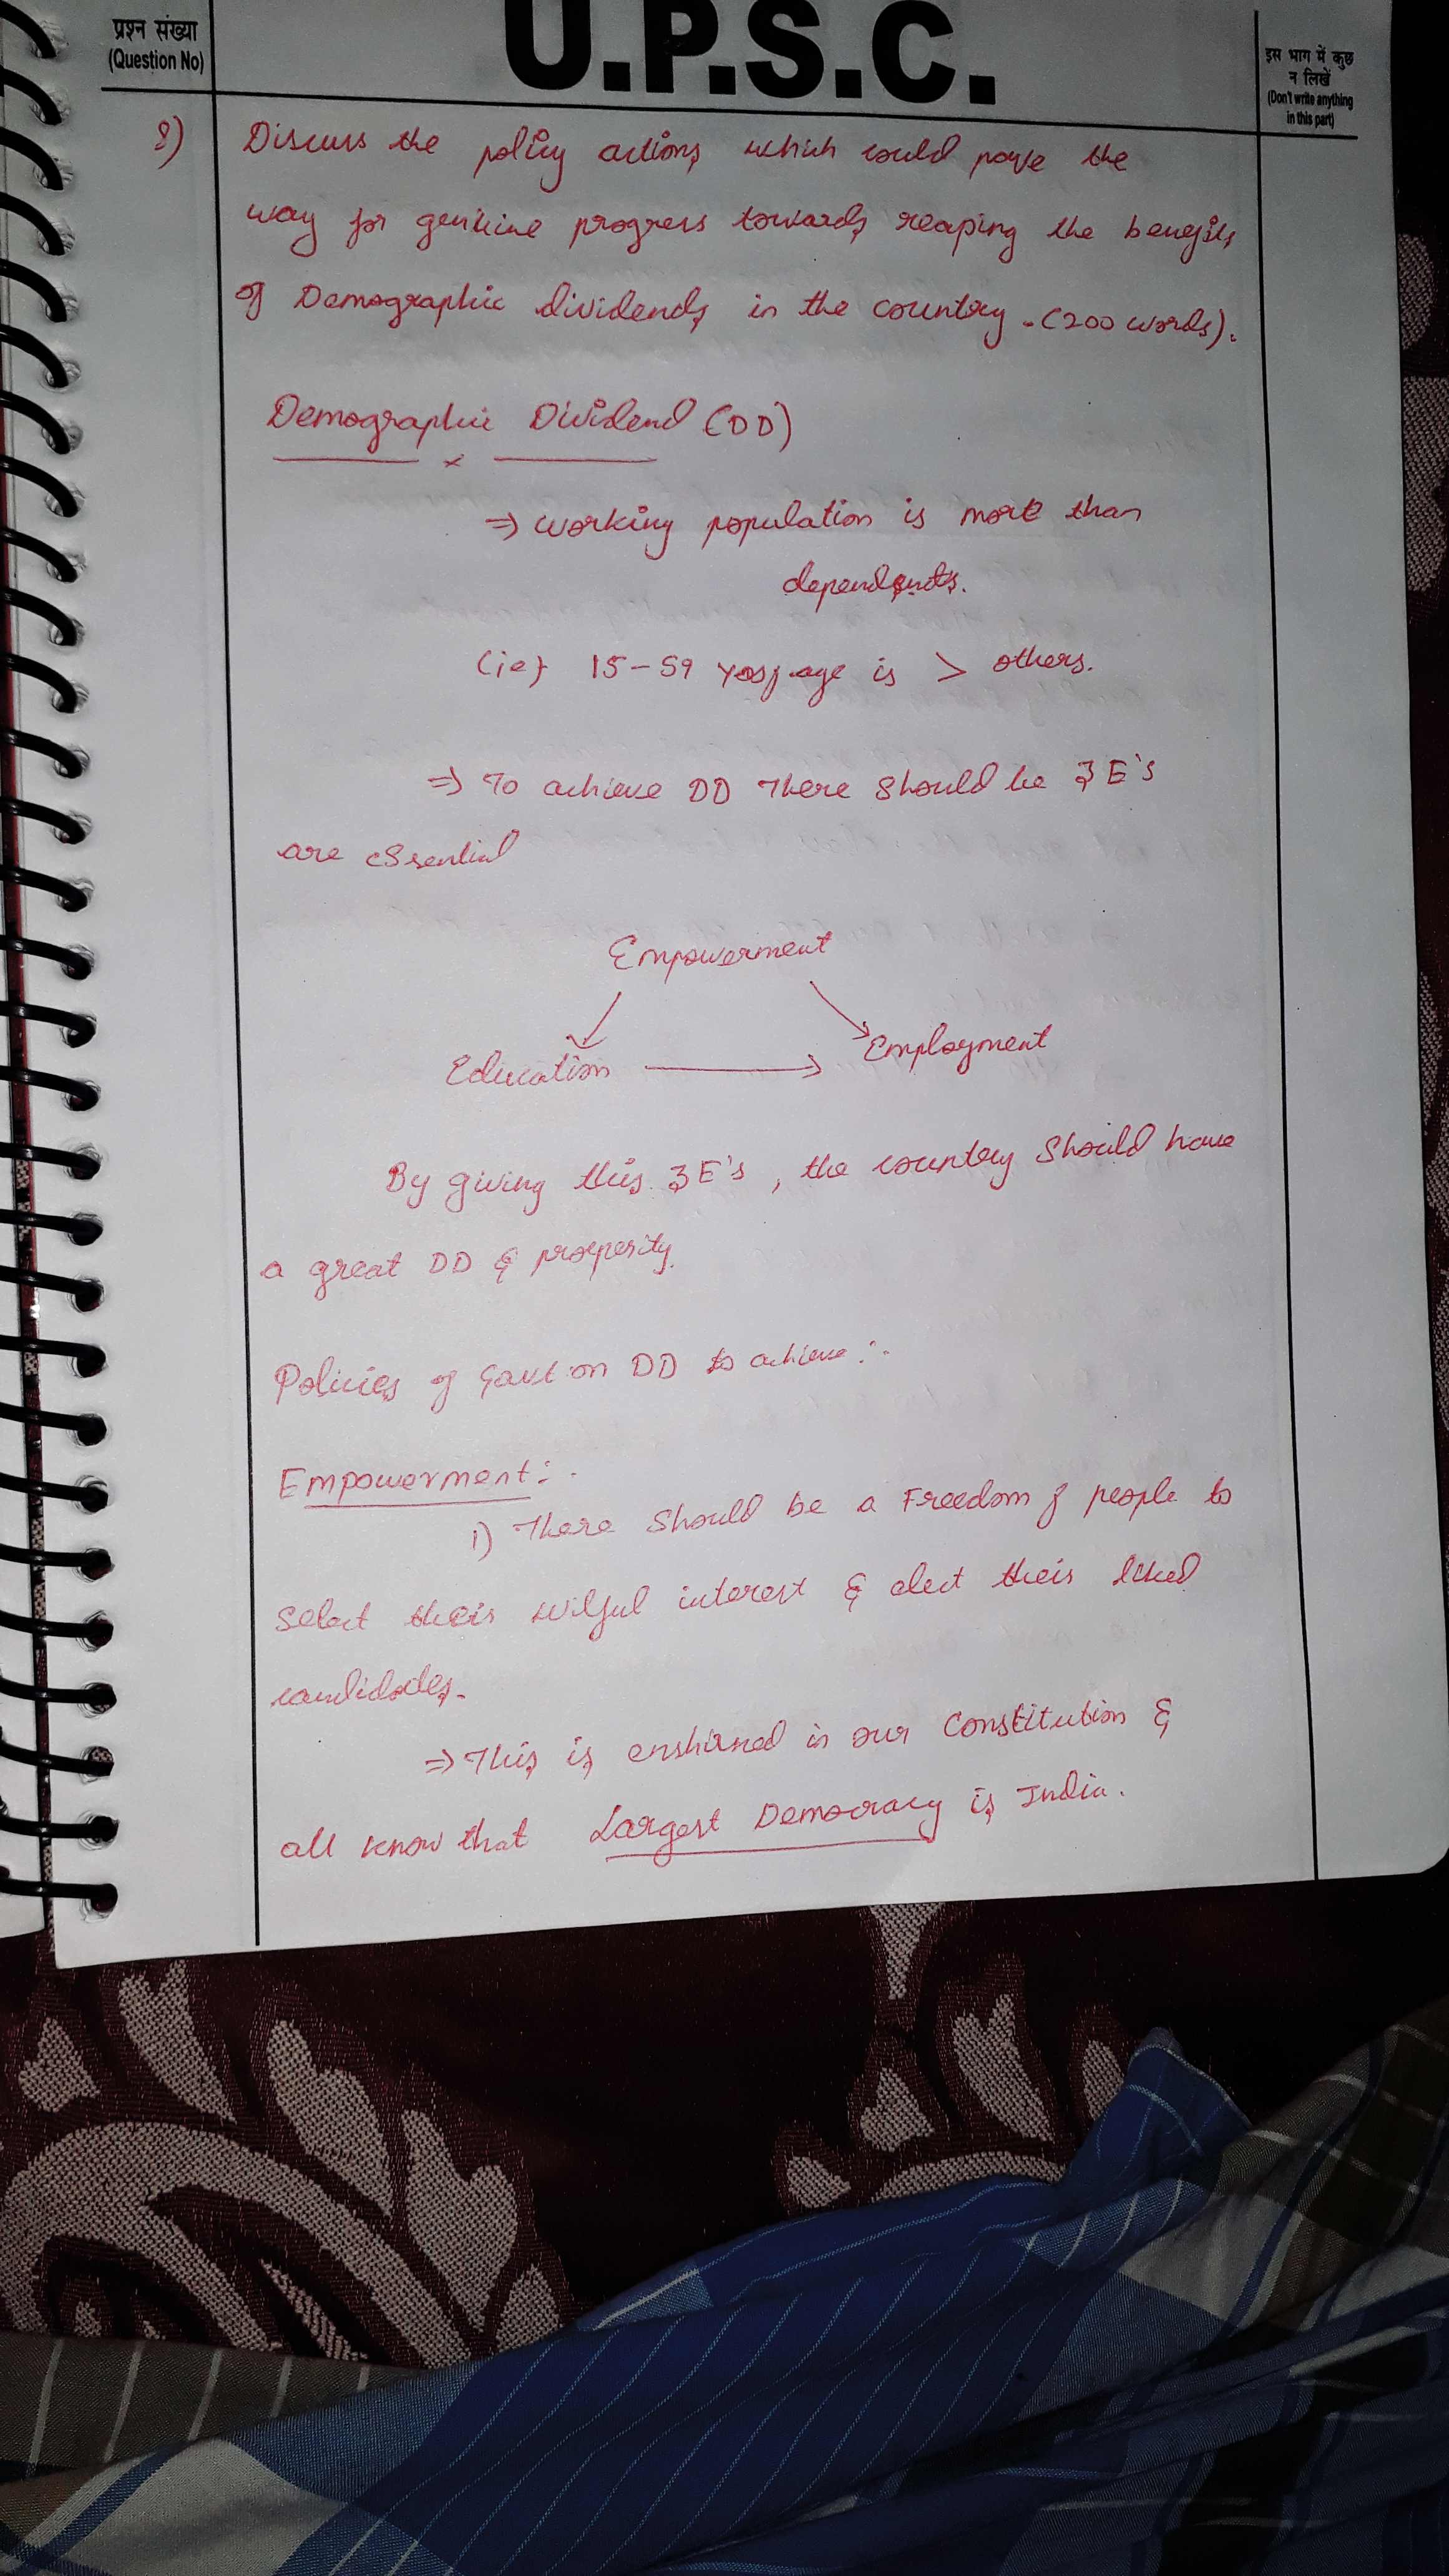 प्रश्न संख्या
(Question No)
U.P.S.C.
इस भाग में कुछ
न लिखें
(Don't write anything
in this part)
8) Discuss the policy actions which could pave the
way for genuine progress towards reaping the benefits
of Demographic dividends in the country. (200 words).
Demographic Dividend (DD)
⇒ working population is more than
dependents.
(ie) 15-59 yrs age is > others.
⇒ To achieve DD There should be 3E's
are essential
Empowerment
Education → Employment
By giving this 3E's, the country should have
a great DD & prosperity.
Policies of Govt on DD to achieve :-
Empowerment :-
i) There should be a Freedom of people to
select their wilful interest & elect their liked
candidates.
⇒ This is enshrined in our Constitution &
all know that Largest Democracy is India.